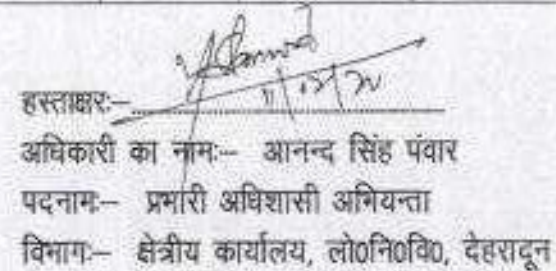 हस्ताक्षरः–
अधिकारी का नामः– आनन्द सिंह पंवार
पदनामः– प्रभारी अधिशासी अभियन्ता
विभागः– क्षेत्रीय कार्यालय, लो0नि0वि0, देहरादून